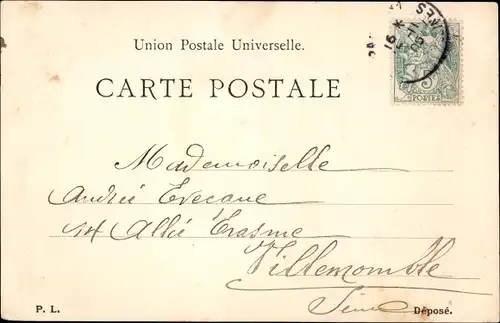 Union Postale Universelle.
CARTE POSTALE
POSTES
Mademoiselle
Andrée Evecane
14 Allée Erasme
Villemomble
Seine
P. L.
Déposé.